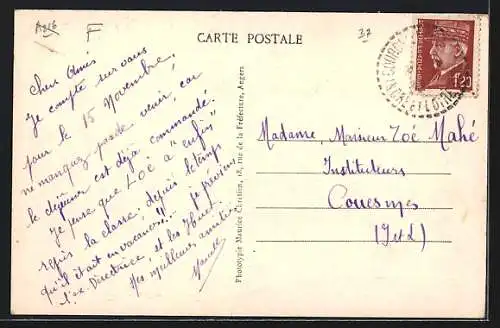 A216
F
CARTE POSTALE
37
1F20
Cher Amis
Je compte sur vous
pour le 15 Novembre,
ne manquez pas de venir, car
le déjeuner est déjà commandé.
Je pense que ZOË a "enfin"
repris la classe, depuis le temps
qu'il était en vacances!!. Je préviens
l'ex-Directrice, et les
Mes meilleures amitiés
Phototypie Maurice Chrétien, 18, rue de la Préfecture, Angers
Madame, Monsieur Zoé Mahé
Instituteurs
Couesmes
(I et L)